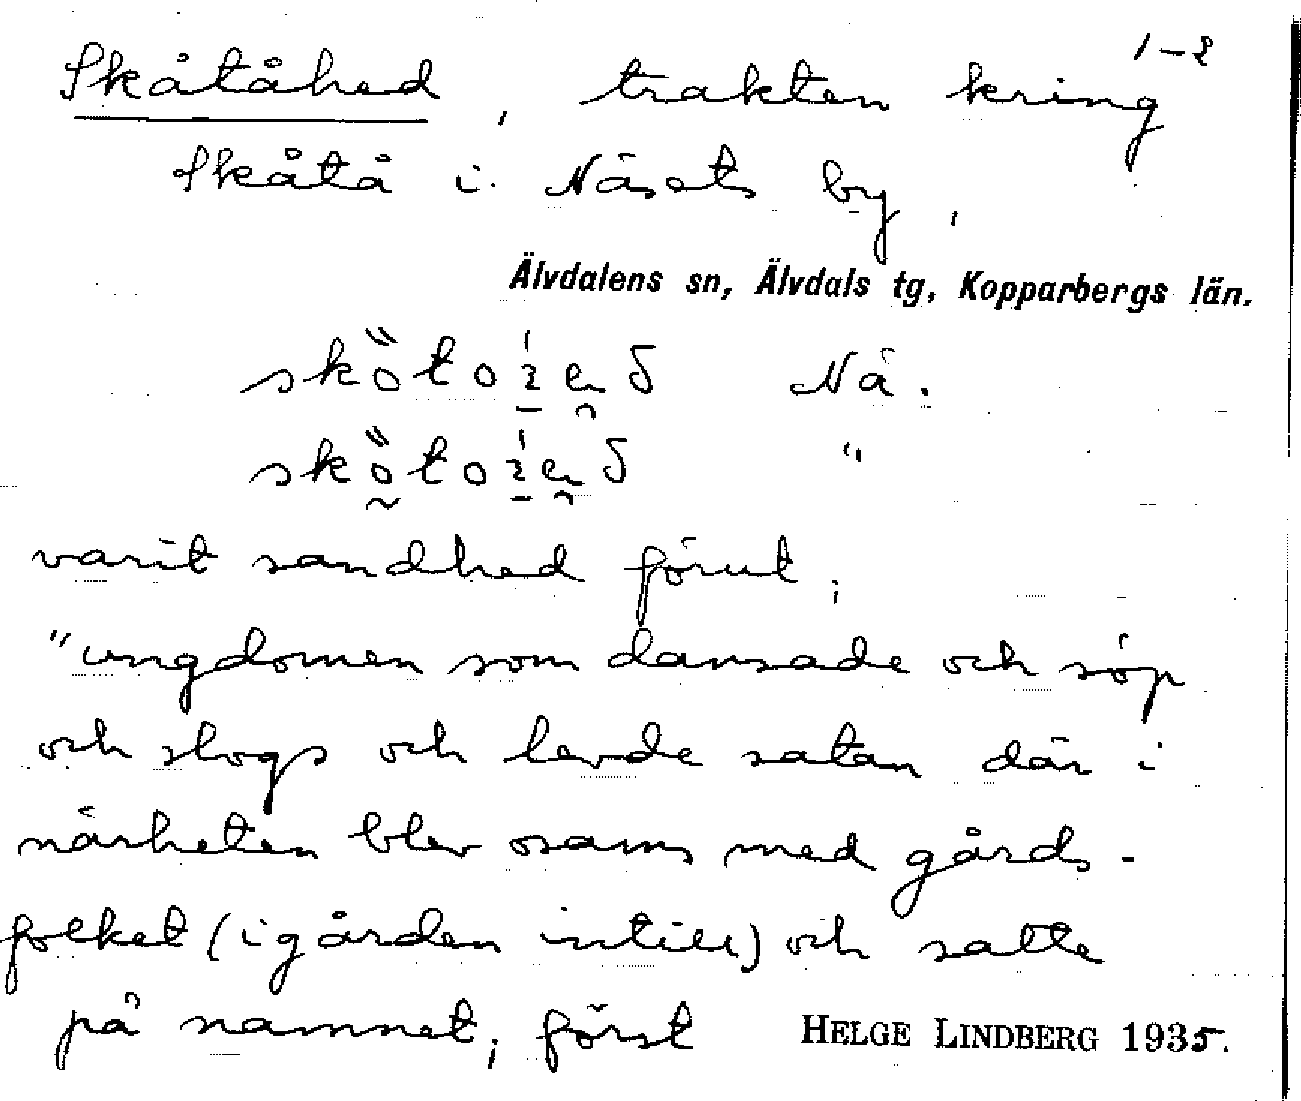 1-2
Skåtåhed, trakten kring
Skåtå i Näsets by,
Älvdalens sn, Älvdals tg, Kopparbergs län.
Nä.
"
varit sandhed förut;
"ungdomen som dansade och söp
och slogs och levde satan där i
närheten blev osams med gårds-
folket (i gården intill) och satte
på namnet; först
HELGE LINDBERG 1935.